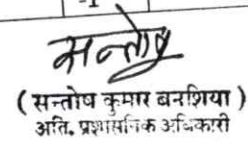 -1
सन्तोष
( सन्तोष कुमार बनशिया )
अति. प्रशासनिक अधिकारी